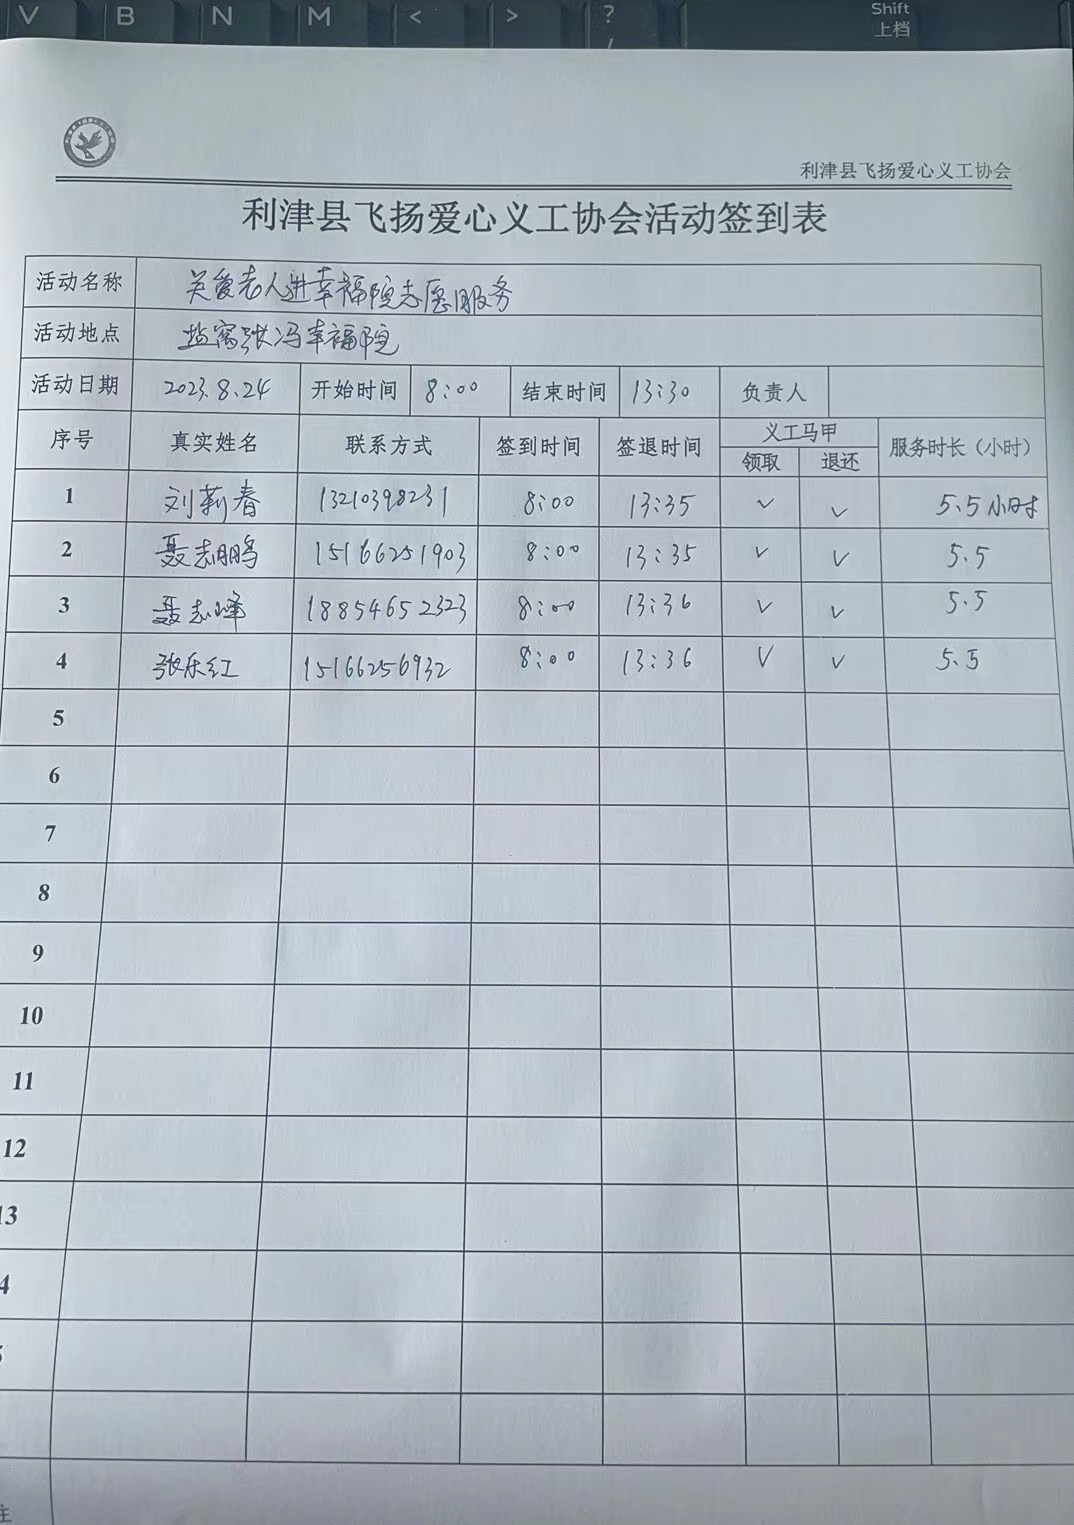 V B N M < > ? /
Shift
上档
利津县飞扬爱心义工协会
利津县飞扬爱心义工协会活动签到表
活动名称 关爱老人进幸福院志愿服务
活动地点 盐窝张冯幸福院
活动日期 2023.8.24 开始时间 8:00 结束时间 13:30 负责人
序号 真实姓名 联系方式 签到时间 签退时间 义工马甲 服务时长（小时）
领取 退还
1 刘莉春 13210398231 8:00 13:35 ✓ ✓ 5.5小时
2 聂志鹏 15166251903 8:00 13:35 ✓ ✓ 5.5
3 聂志峰 18854652323 8:00 13:36 ✓ ✓ 5.5
4 张乐红 15166256932 8:00 13:36 ✓ ✓ 5.5
5
6
7
8
9
10
11
12
13
4
注